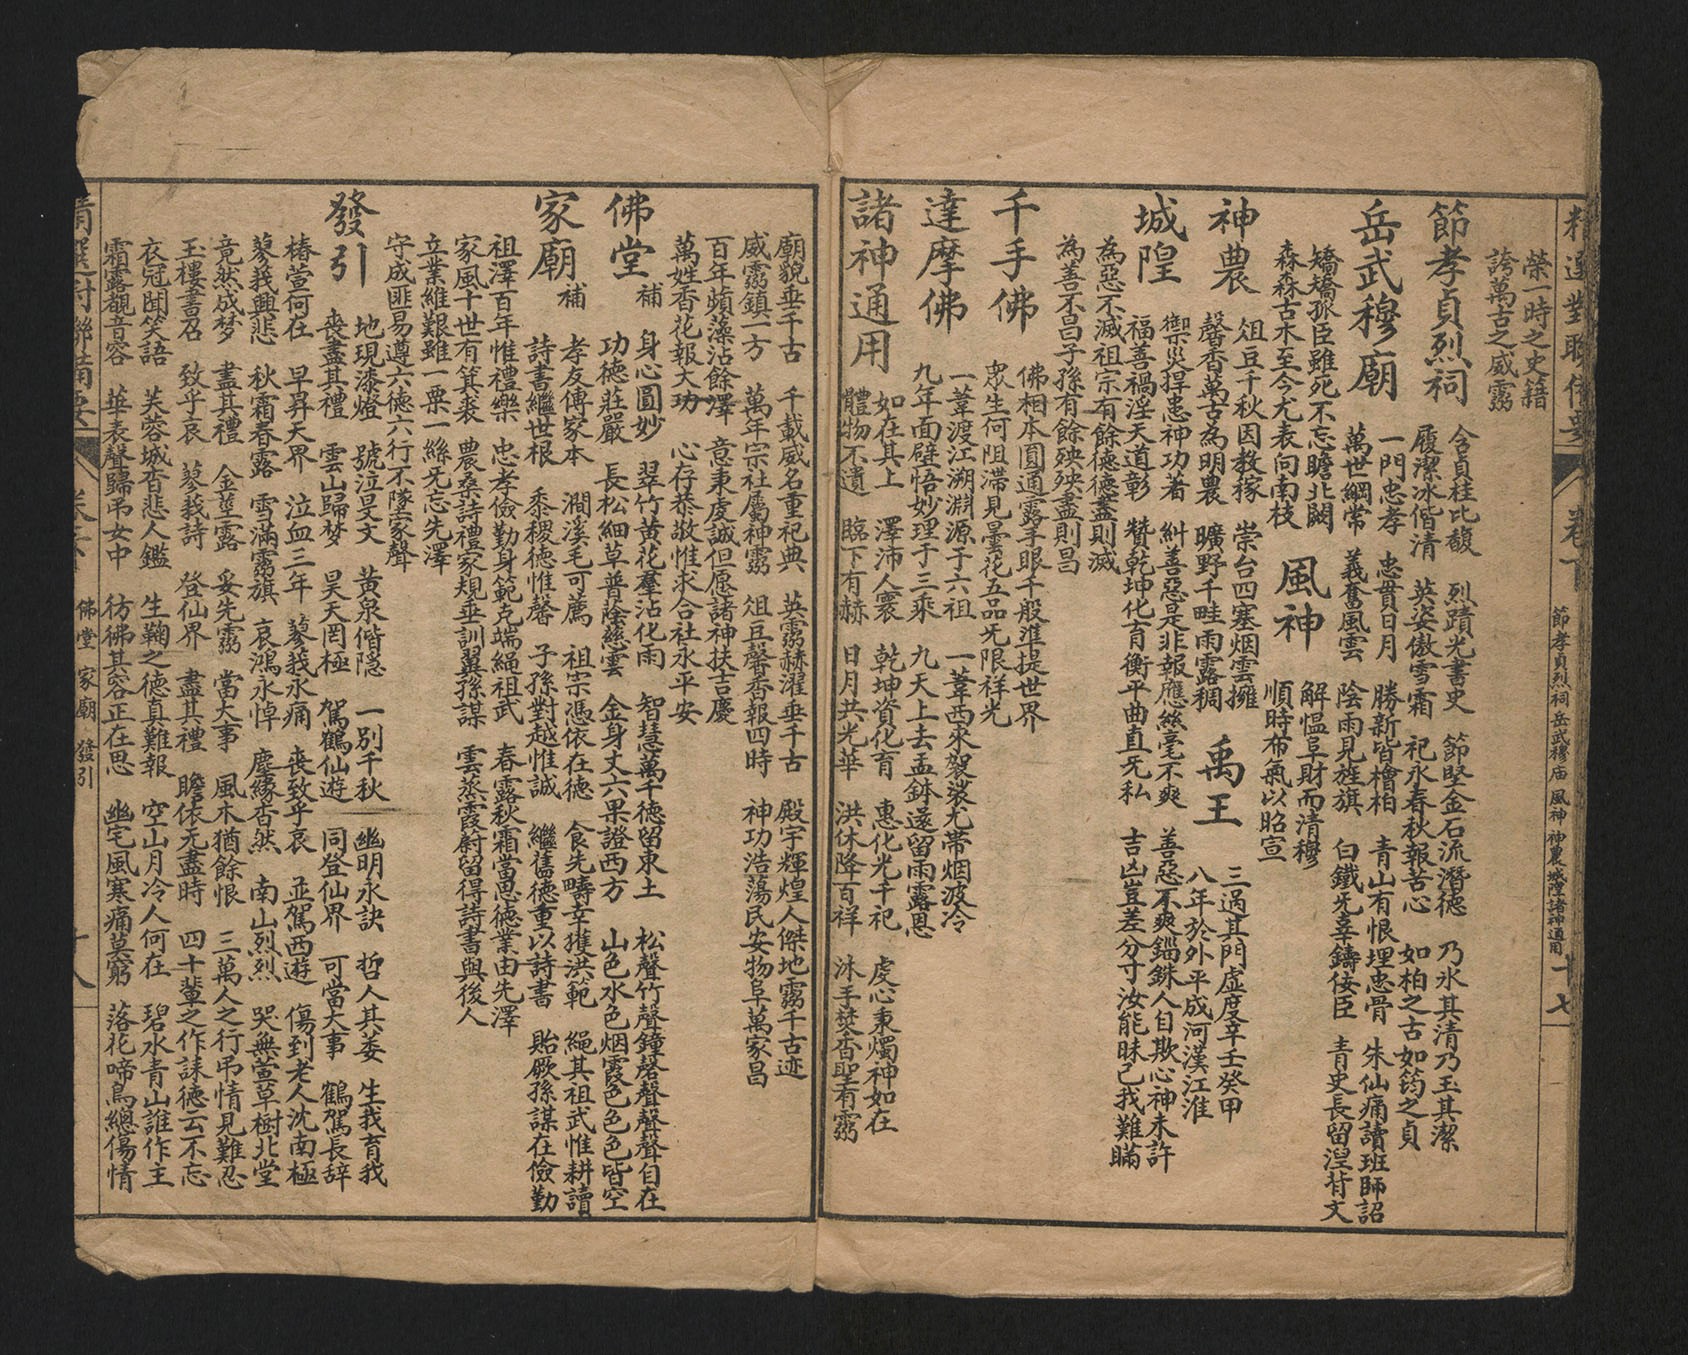 榮一時之史籍
誇萬古之威靈
節孝貞烈祠
含貞桂比馥 烈蹟光書史 節堅金石流潛德 乃水其清乃玉其潔
履潔冰偕清 英姿傲雪霜 祀永春秋報苦心 如柏之古如筠之貞
岳武穆廟
一門忠孝 忠貫日月 勝新皆檜柏 青山有恨埋忠骨 朱仙痛讀班師詔
萬世綱常 義奮風雲 陰雨見旌旗 白鐵无辜鑄佞臣 青史長留涅背文
矯矯孤臣雖死不忘瞻北闕
森森古木至今尤表向南枝
風神
解慍阜財而清穆
順時布氣以昭宣
神農
俎豆千秋因教稼 崇台四塞烟雲擁
馨香萬古為明農 曠野千畦雨露稠
禹王
三過其門虛度辛壬癸甲
八年於外平成河漢江淮
城隍
禦災捍患神功著 糾善惡是非報應絲毫不爽 善惡不爽錙銖人自欺心神未許
福善禍淫天道彰 贊乾坤化育衡平曲直旡私 吉凶豈差分寸汝能昧己我難瞞
為惡不滅祖宗有餘德德盡則滅
為善不昌子孫有餘殃殃盡則昌
千手佛
佛相本圓通露手眼千般準提世界
眾生何阻滯見曇花五品旡限祥光
達摩佛
一葦渡江溯淵源于六祖 一葦西來袈裟尤帶烟波冷
九年面壁悟妙理于三乘 九天上去盂鉢遠留雨露恩
諸神通用
如在其上 澤沛人寰 乾坤資化育 惠化光千祀 虔心秉燭神如在
體物不遺 臨下有赫 日月共光華 洪休降百祥 沐手焚香聖有靈
精選對聯備要 卷下 節孝貞烈祠 岳武穆庙 風神 神農 城隍 諸神通用 十七
廟貌垂千古 千載威名重祀典 英靈赫濯垂千古 殿宇輝煌人傑地靈千古迹
威靈鎮一方 萬年宗社屬神靈 俎豆馨香報四時 神功浩蕩民安物阜萬家昌
百年蘋藻沾餘澤 意秉虔誠但愿諸神扶吉慶
萬姓香花報大功 心存恭敬惟求合社永平安
佛堂 補
身心圓妙 翠竹黃花羣沾化雨 智慧萬千德留東土 松聲竹聲鐘磬聲聲聲自在
功德莊嚴 長松細草普蔭慈雲 金身丈六果證西方 山色水色烟霞色色色皆空
家廟 補
孝友傳家本 澗溪毛可薦 祖宗憑依在德 食先疇幸獲洪範 繩其祖武惟耕讀
詩書繼世根 黍稷德惟馨 子孫對越惟誠 繼舊德重以詩書 貽厥孫謀在儉勤
祖澤百年惟禮樂 忠孝儉勤身範克端繩祖武 春露秋霜當思德業由先澤
家風十世有箕裘 農桑詩禮家規垂訓翼孫謀 雲蒸霞蔚留得詩書與後人
立業維艱雖一粟一絲旡忘先澤
守成匪易遵六德六行不墜家聲
發引
地現漆燈 號泣旻文 黃泉偕隐 一別千秋 幽明永訣 哲人其萎 生我育我
喪盡其禮 雲山歸梦 昊天罔極 駕鶴仙遊 同登仙界 可當大事 鶴駕長辞
椿萱何在 早昇天界 泣血三年 蓼莪永痛 喪致乎哀 並駕西遊 傷到老人沈南極
蓼莪興悲 秋霜春露 雪滿靈旗 哀鴻永悼 塵緣杳然 南山烈烈 哭無萱草樹北堂
竟然成梦 盡其禮 金莖露 妥先靈 當大事 風木猶餘恨 三萬人之行弔情見難忍
玉樓書召 致乎哀 蓼莪詩 登仙界 盡其禮 瞻依无盡時 四十輩之作誄德云不忘
衣冠閗笑語 芙蓉城杳悲人鑑 生鞠之德真難報 空山月冷人何在 碧水青山誰作主
霜露覩音容 華表聲歸弔女中 彷彿其容正在思 幽宅風寒痛莫窮 落花啼鳥總傷情
精選對聯備要 卷下 佛堂 家廟 發引 十八